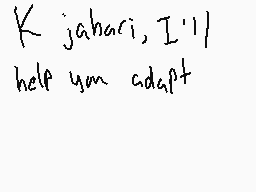 K jahari, I'll
help you adapt